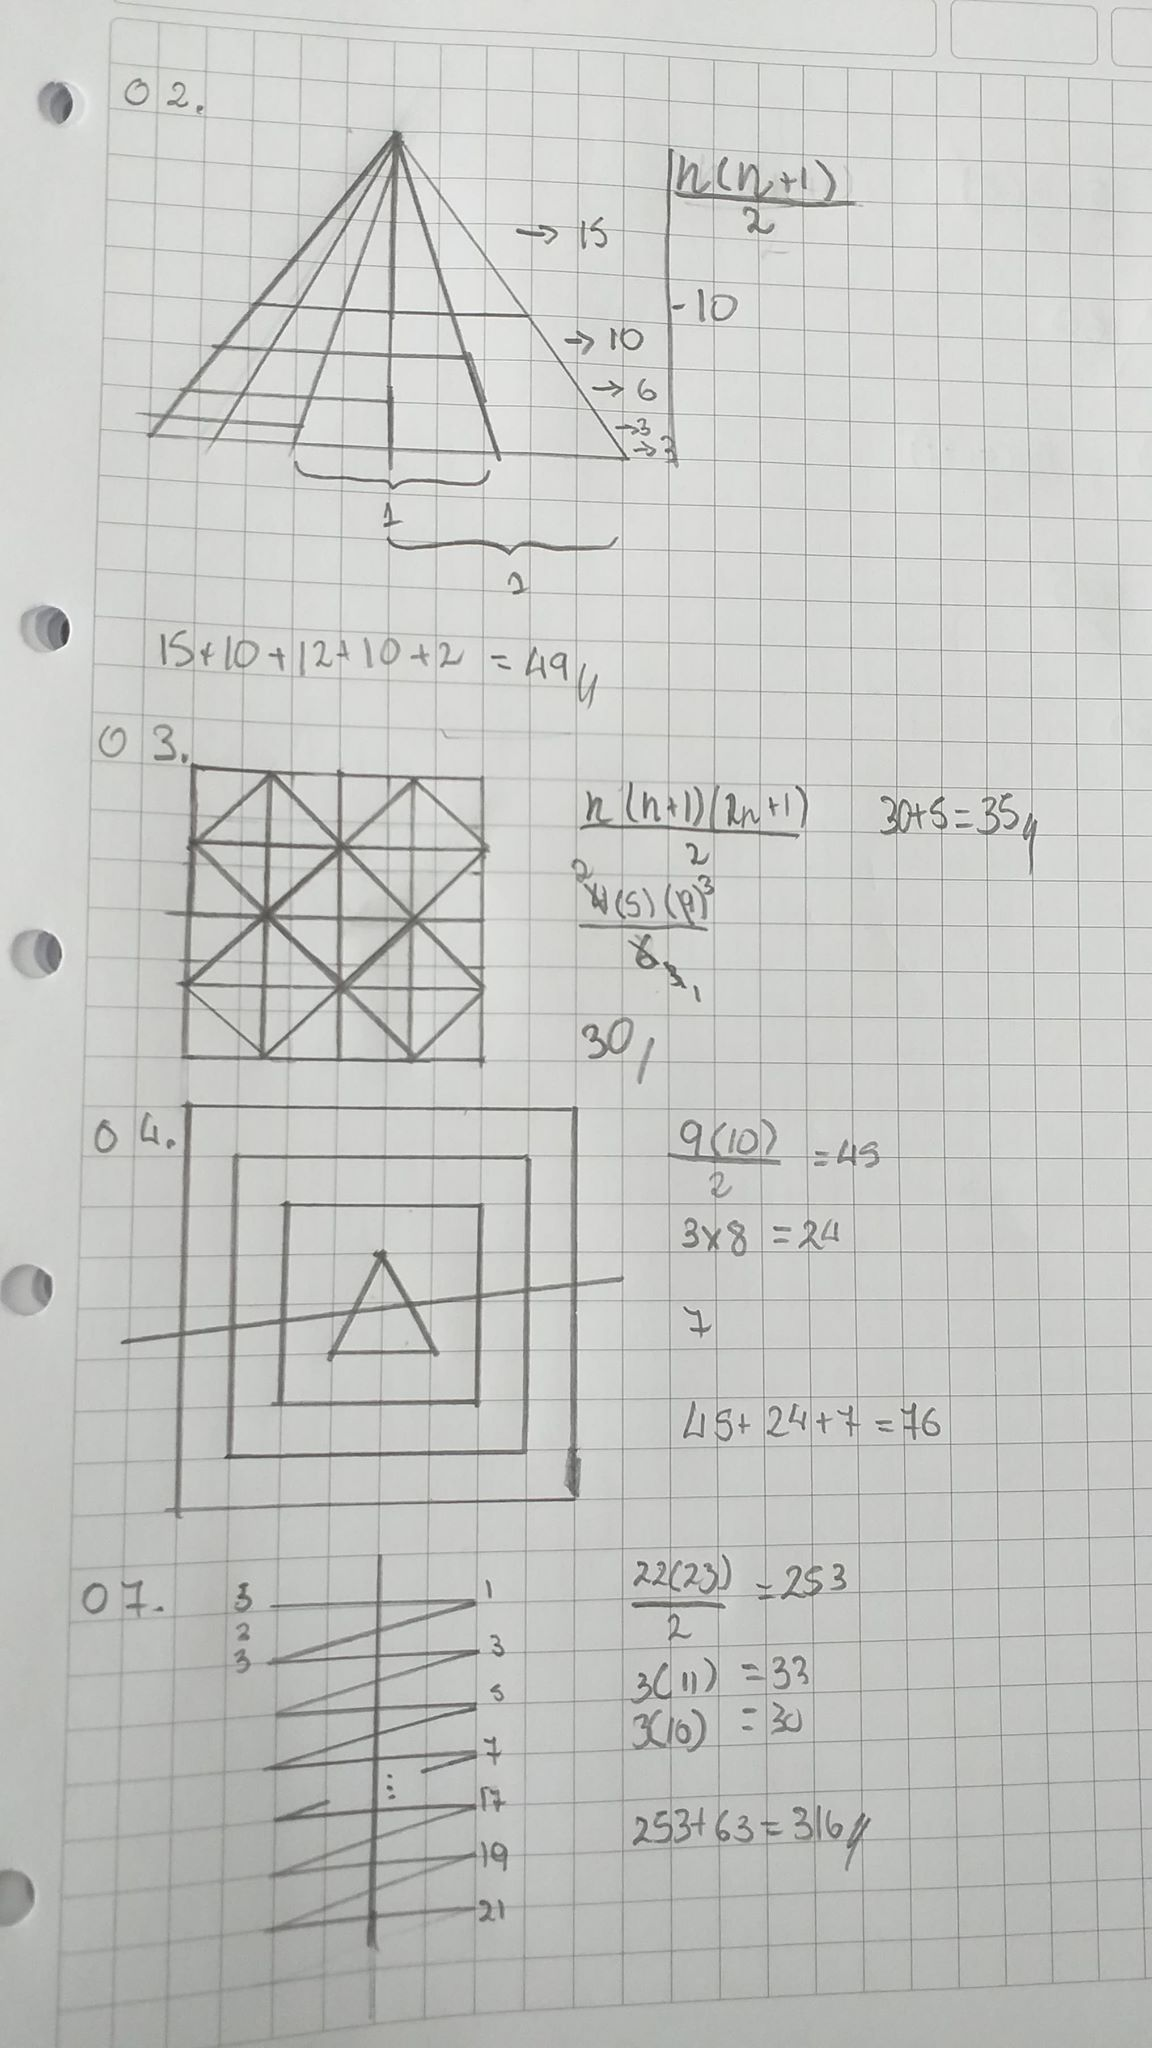 02.
n(n+1)
2
→ 15
-10
→ 10
→ 6
→ 3
1
15+10+12+10+2 = 49
03.
n(n+1)(2n+1)
2
30+5=35
2 4(5)(9) 3
6 3 1
30
04.
9(10)
2
=45
3x8 = 24
7
45+24+7=76
07.
5 1
2
3 3
5
7
⋮
17
19
21
22(23)
2
=253
3(11) = 33
3(10) = 30
253+63=316